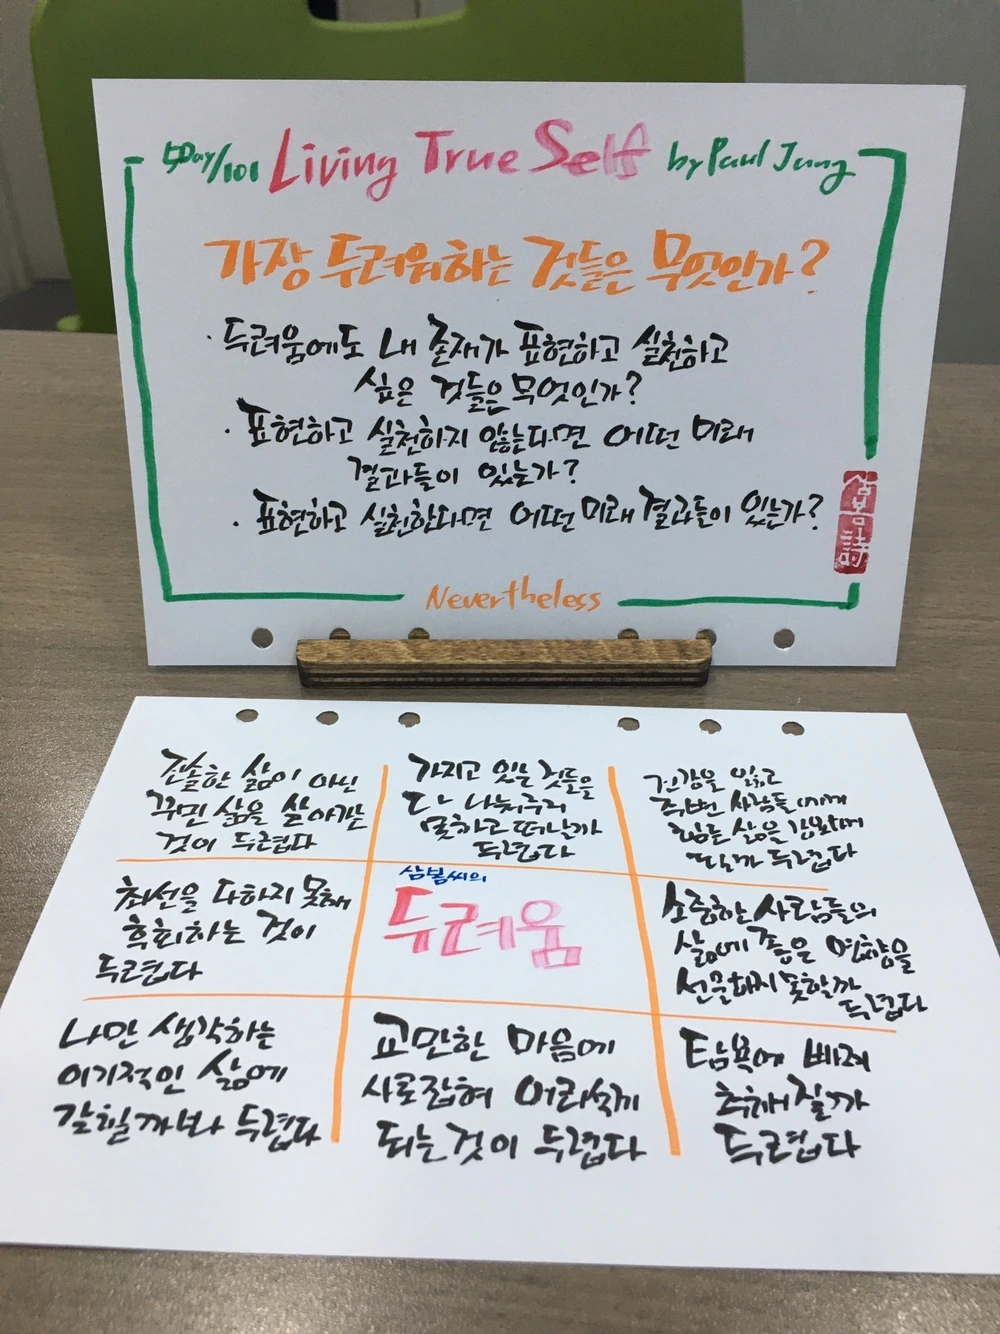 5Day/101 Living True Self by Paul Jung
가장 두려워하는 것들은 무엇인가?
· 두려움에도 내 존재가 표현하고 실천하고
싶은 것들은 무엇인가?
· 표현하고 실천하지 않는다면 어떤 미래
결과들이 있는가?
· 표현하고 실천한다면 어떤 미래 결과들이 있는가?
삼봄詩
Nevertheless
진솔한 삶이 아닌
꾸민 삶을 살아가는
것이 두렵다
가지고 있는 것들을
다 나눠주지
못하고 떠날까
두렵다
건강을 잃고
주변 사람들에게
힘든 삶을 강요하게
될까 두렵다
최선을 다하지 못해
후회하는 것이
두렵다
삼봄씨의
두려움
소중한 사람들의
삶에 좋은 영향을
선물하지 못할까
두렵다
나만 생각하는
이기적인 삶에
갇힐까봐 두렵다
교만한 마음에
사로잡혀 어리석게
되는 것이 두렵다
탐욕에 빠져
추해질까
두렵다